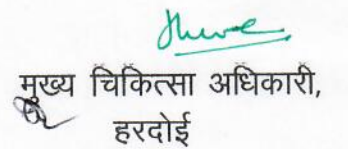 मुख्य चिकित्सा अधिकारी,
हरदोई